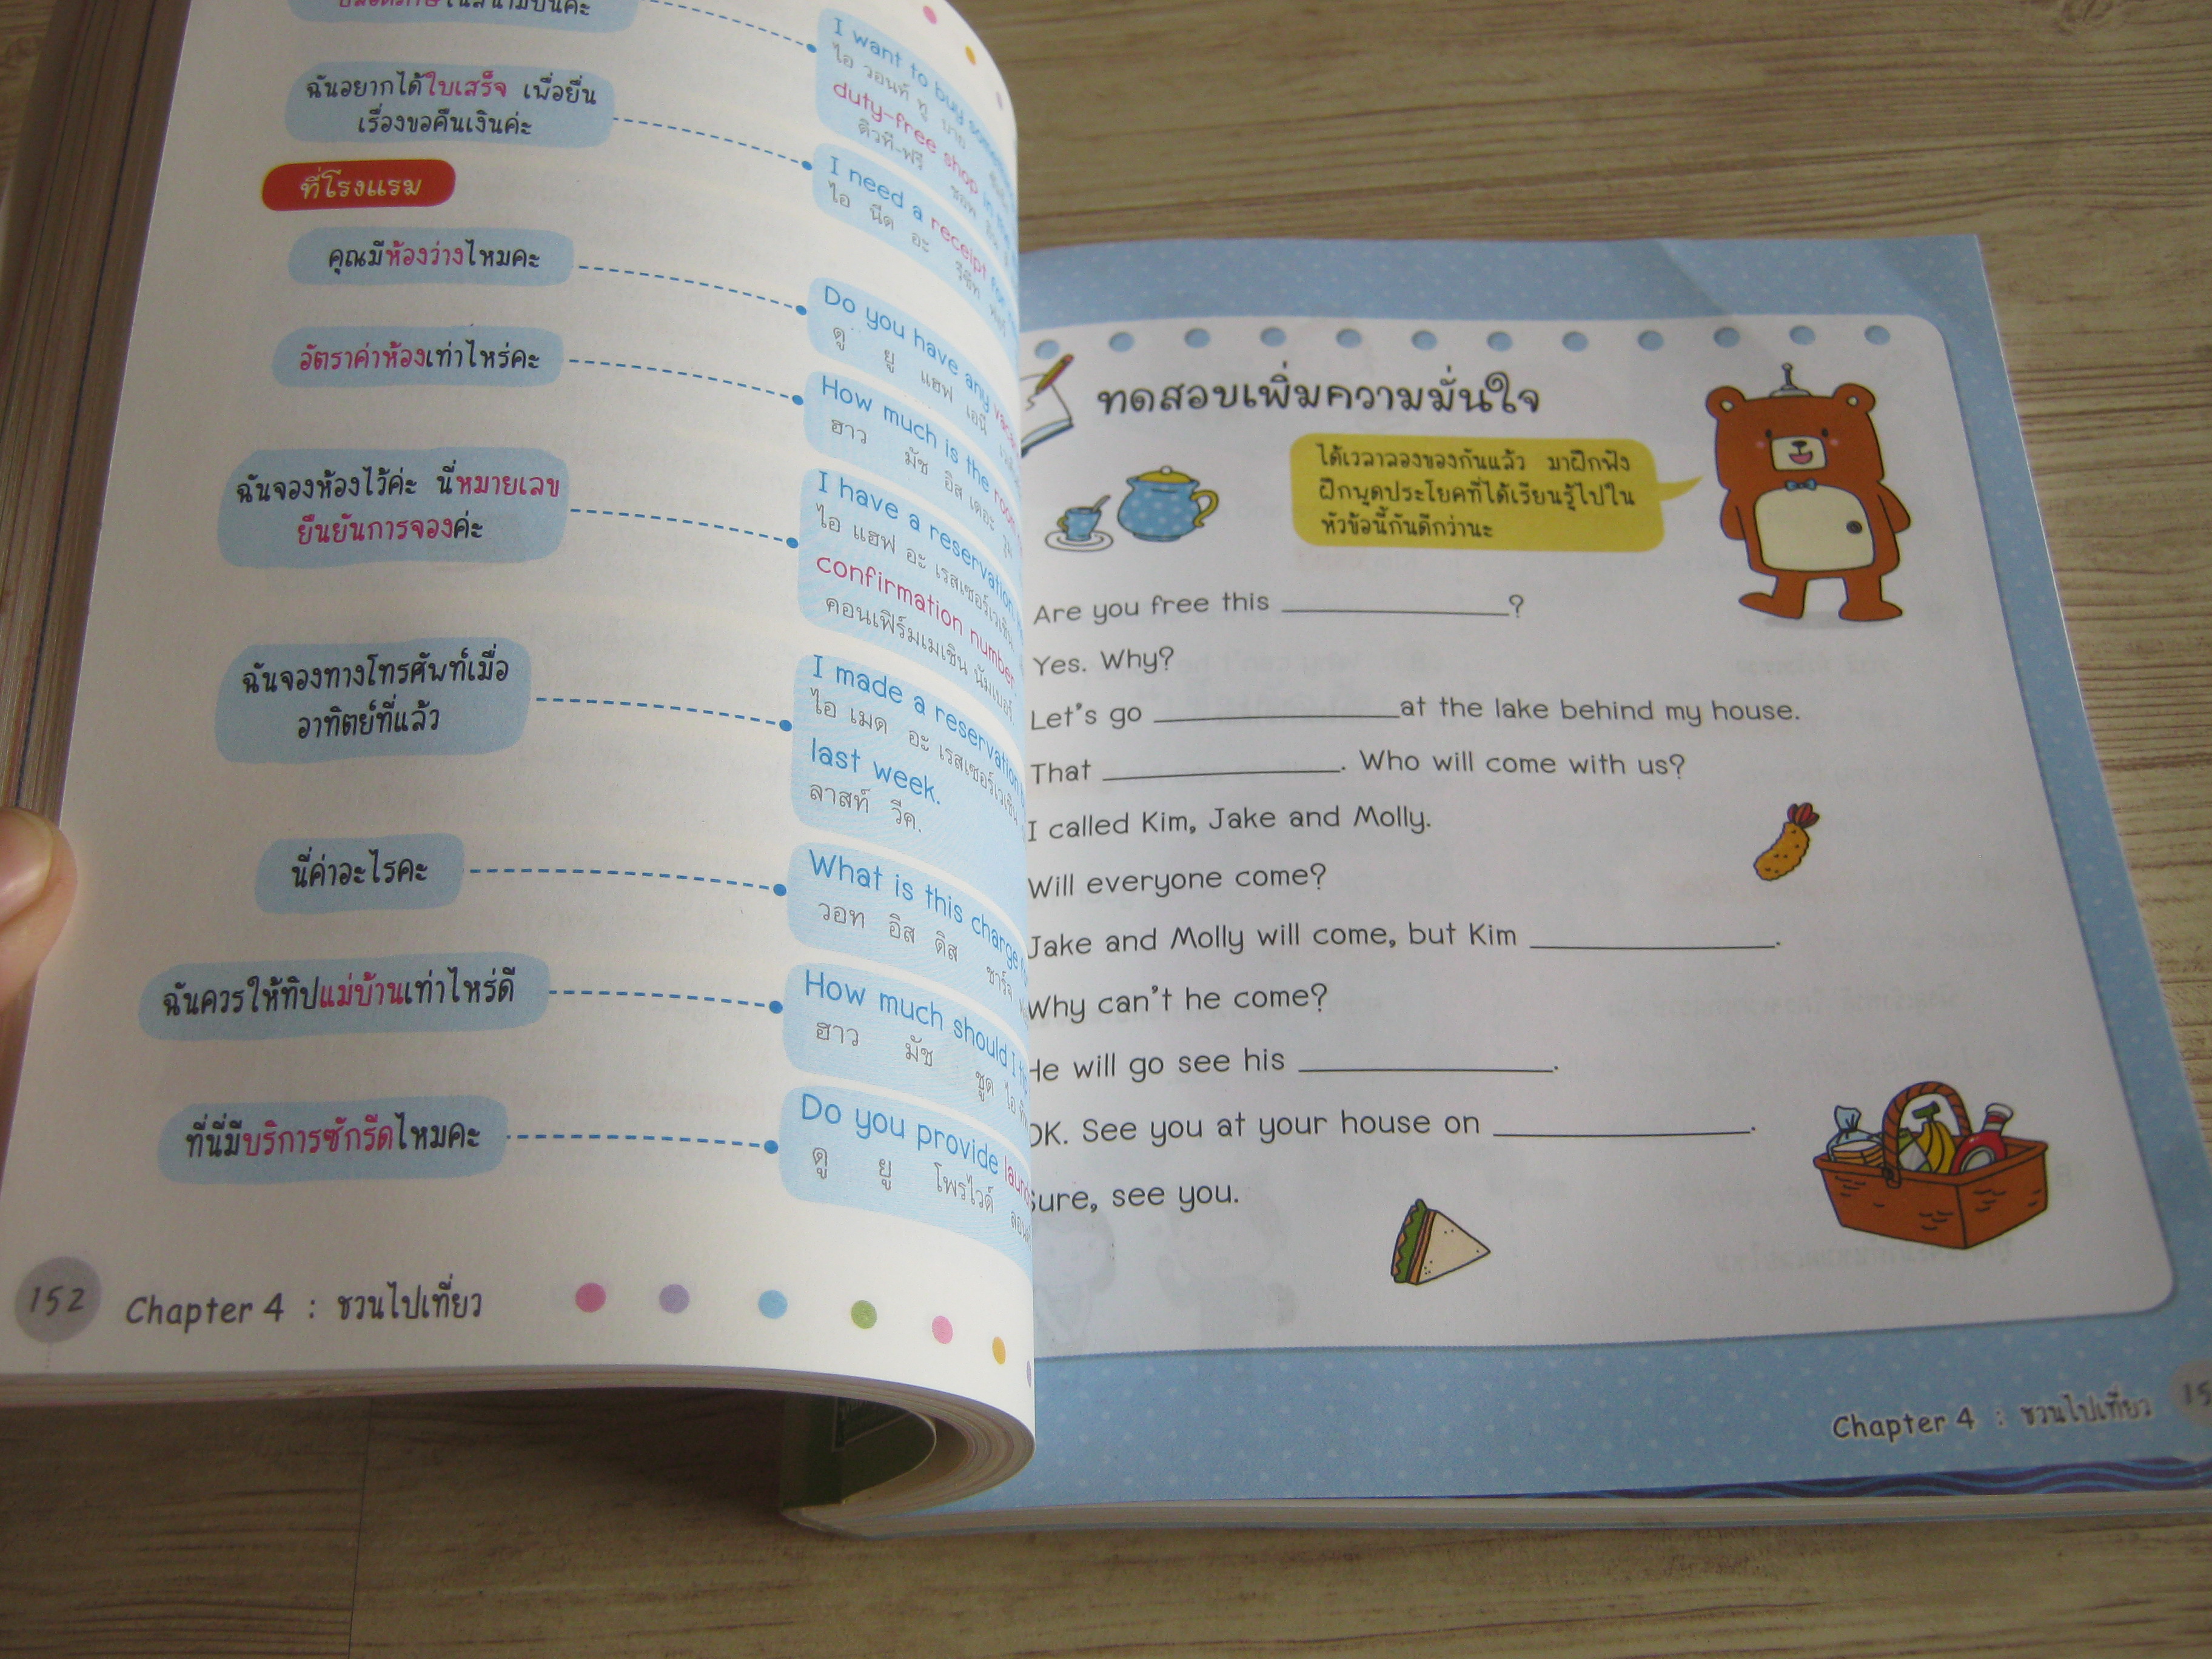 ในสนามบินคะ
I want to buy
ไอ วอนท์ ทู บาย
duty-free shop in the
ดิวที-ฟรี ชอพ
ฉันอยากได้ใบเสร็จ เพื่อยื่น
เรื่องขอคืนเงินค่ะ
I need a receipt for
ไอ นีด อะ รีซีท ฟอร์
ที่โรงแรม
คุณมีห้องว่างไหมคะ
Do you have any
ดู ยู แฮฟ เอนี่
อัตราค่าห้องเท่าไหร่คะ
How much is the room
ฮาว มัช อิส เดอะ รูม
ฉันจองห้องไว้ค่ะ นี่หมายเลข
ยืนยันการจองค่ะ
I have a reservation
ไอ แฮฟ อะ เรสเซอร์เวเชิน
confirmation number.
คอนเฟิร์มเมเชิน นัมเบอร์
ฉันจองทางโทรศัพท์เมื่อ
อาทิตย์ที่แล้ว
I made a reservation
ไอ เมด อะ เรสเซอร์เวเชิน
last week.
ลาสท์ วีค.
นี่ค่าอะไรคะ
What is this charge
วอท อิส ดิส ชาร์จ
ฉันควรให้ทิปแม่บ้านเท่าไหร่ดี
How much should I tip
ฮาว มัช ชูด ไอ ทิพ
ที่นี่มีบริการซักรีดไหมคะ
Do you provide
ดู ยู โพรไวด์
152 Chapter 4 : ชวนไปเที่ยว
ทดสอบเพิ่มความมั่นใจ
ได้เวลาลองของกันแล้ว มาฝึกฟัง
ฝึกพูดประโยคที่ได้เรียนรู้ไปใน
หัวข้อนี้กันดีกว่านะ
Are you free this ____________?
Yes. Why?
Let's go ____________at the lake behind my house.
That ____________. Who will come with us?
I called Kim, Jake and Molly.
Will everyone come?
Jake and Molly will come, but Kim ____________.
Why can't he come?
He will go see his ____________.
OK. See you at your house on ____________.
Sure, see you.
Chapter 4 : ชวนไปเที่ยว